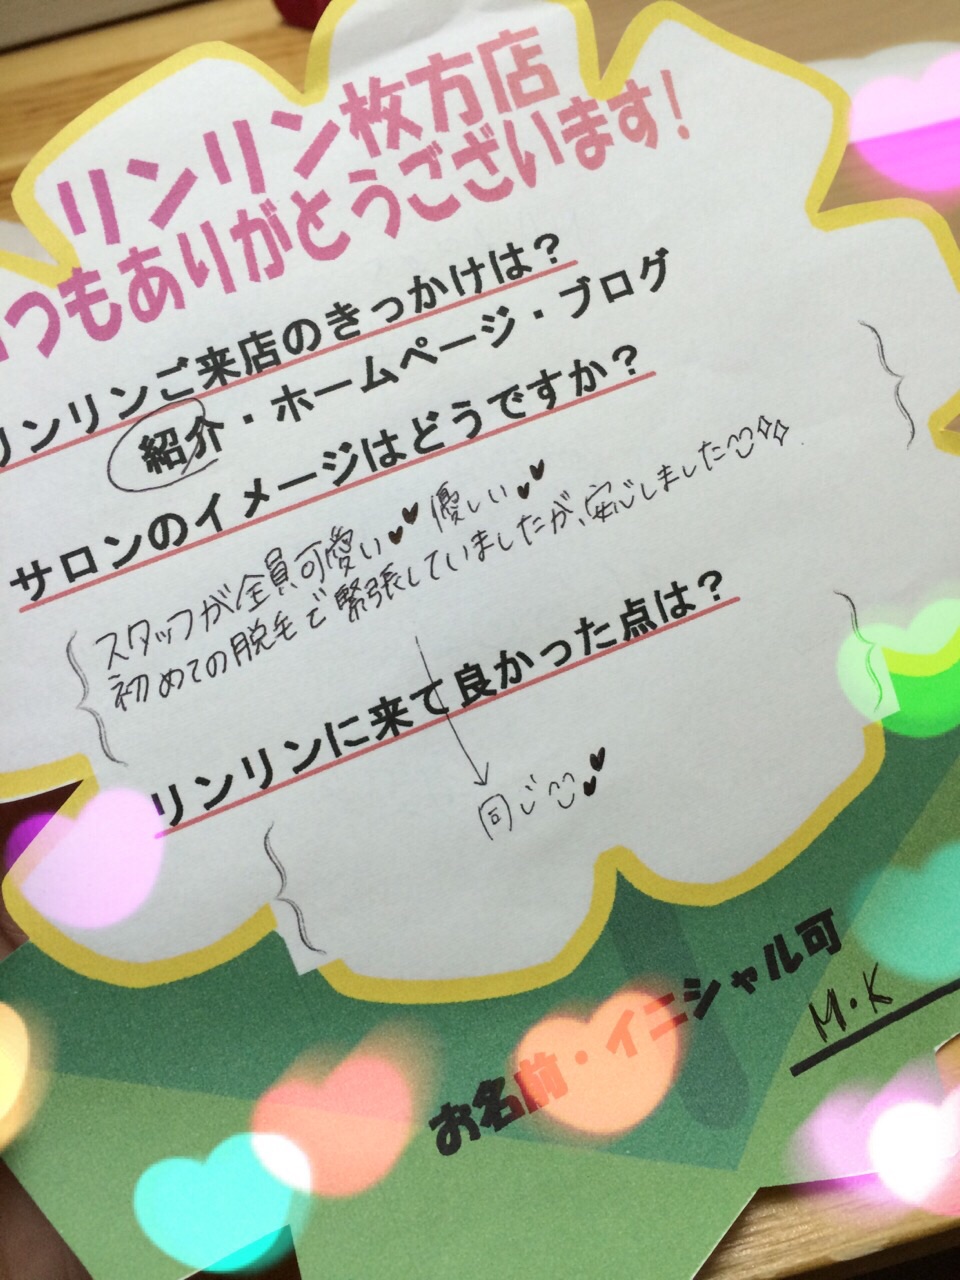 リンリン枚方店
いつもありがとうございます!
リンリンご来店のきっかけは?
紹介・ホームページ・ブログ
サロンのイメージはどうですか?
スタッフが全員可愛い 優しい
初めての脱毛で緊張していましたが、安心しました
リンリンに来て良かった点は?
同じ
お名前・イニシャル可
M・K